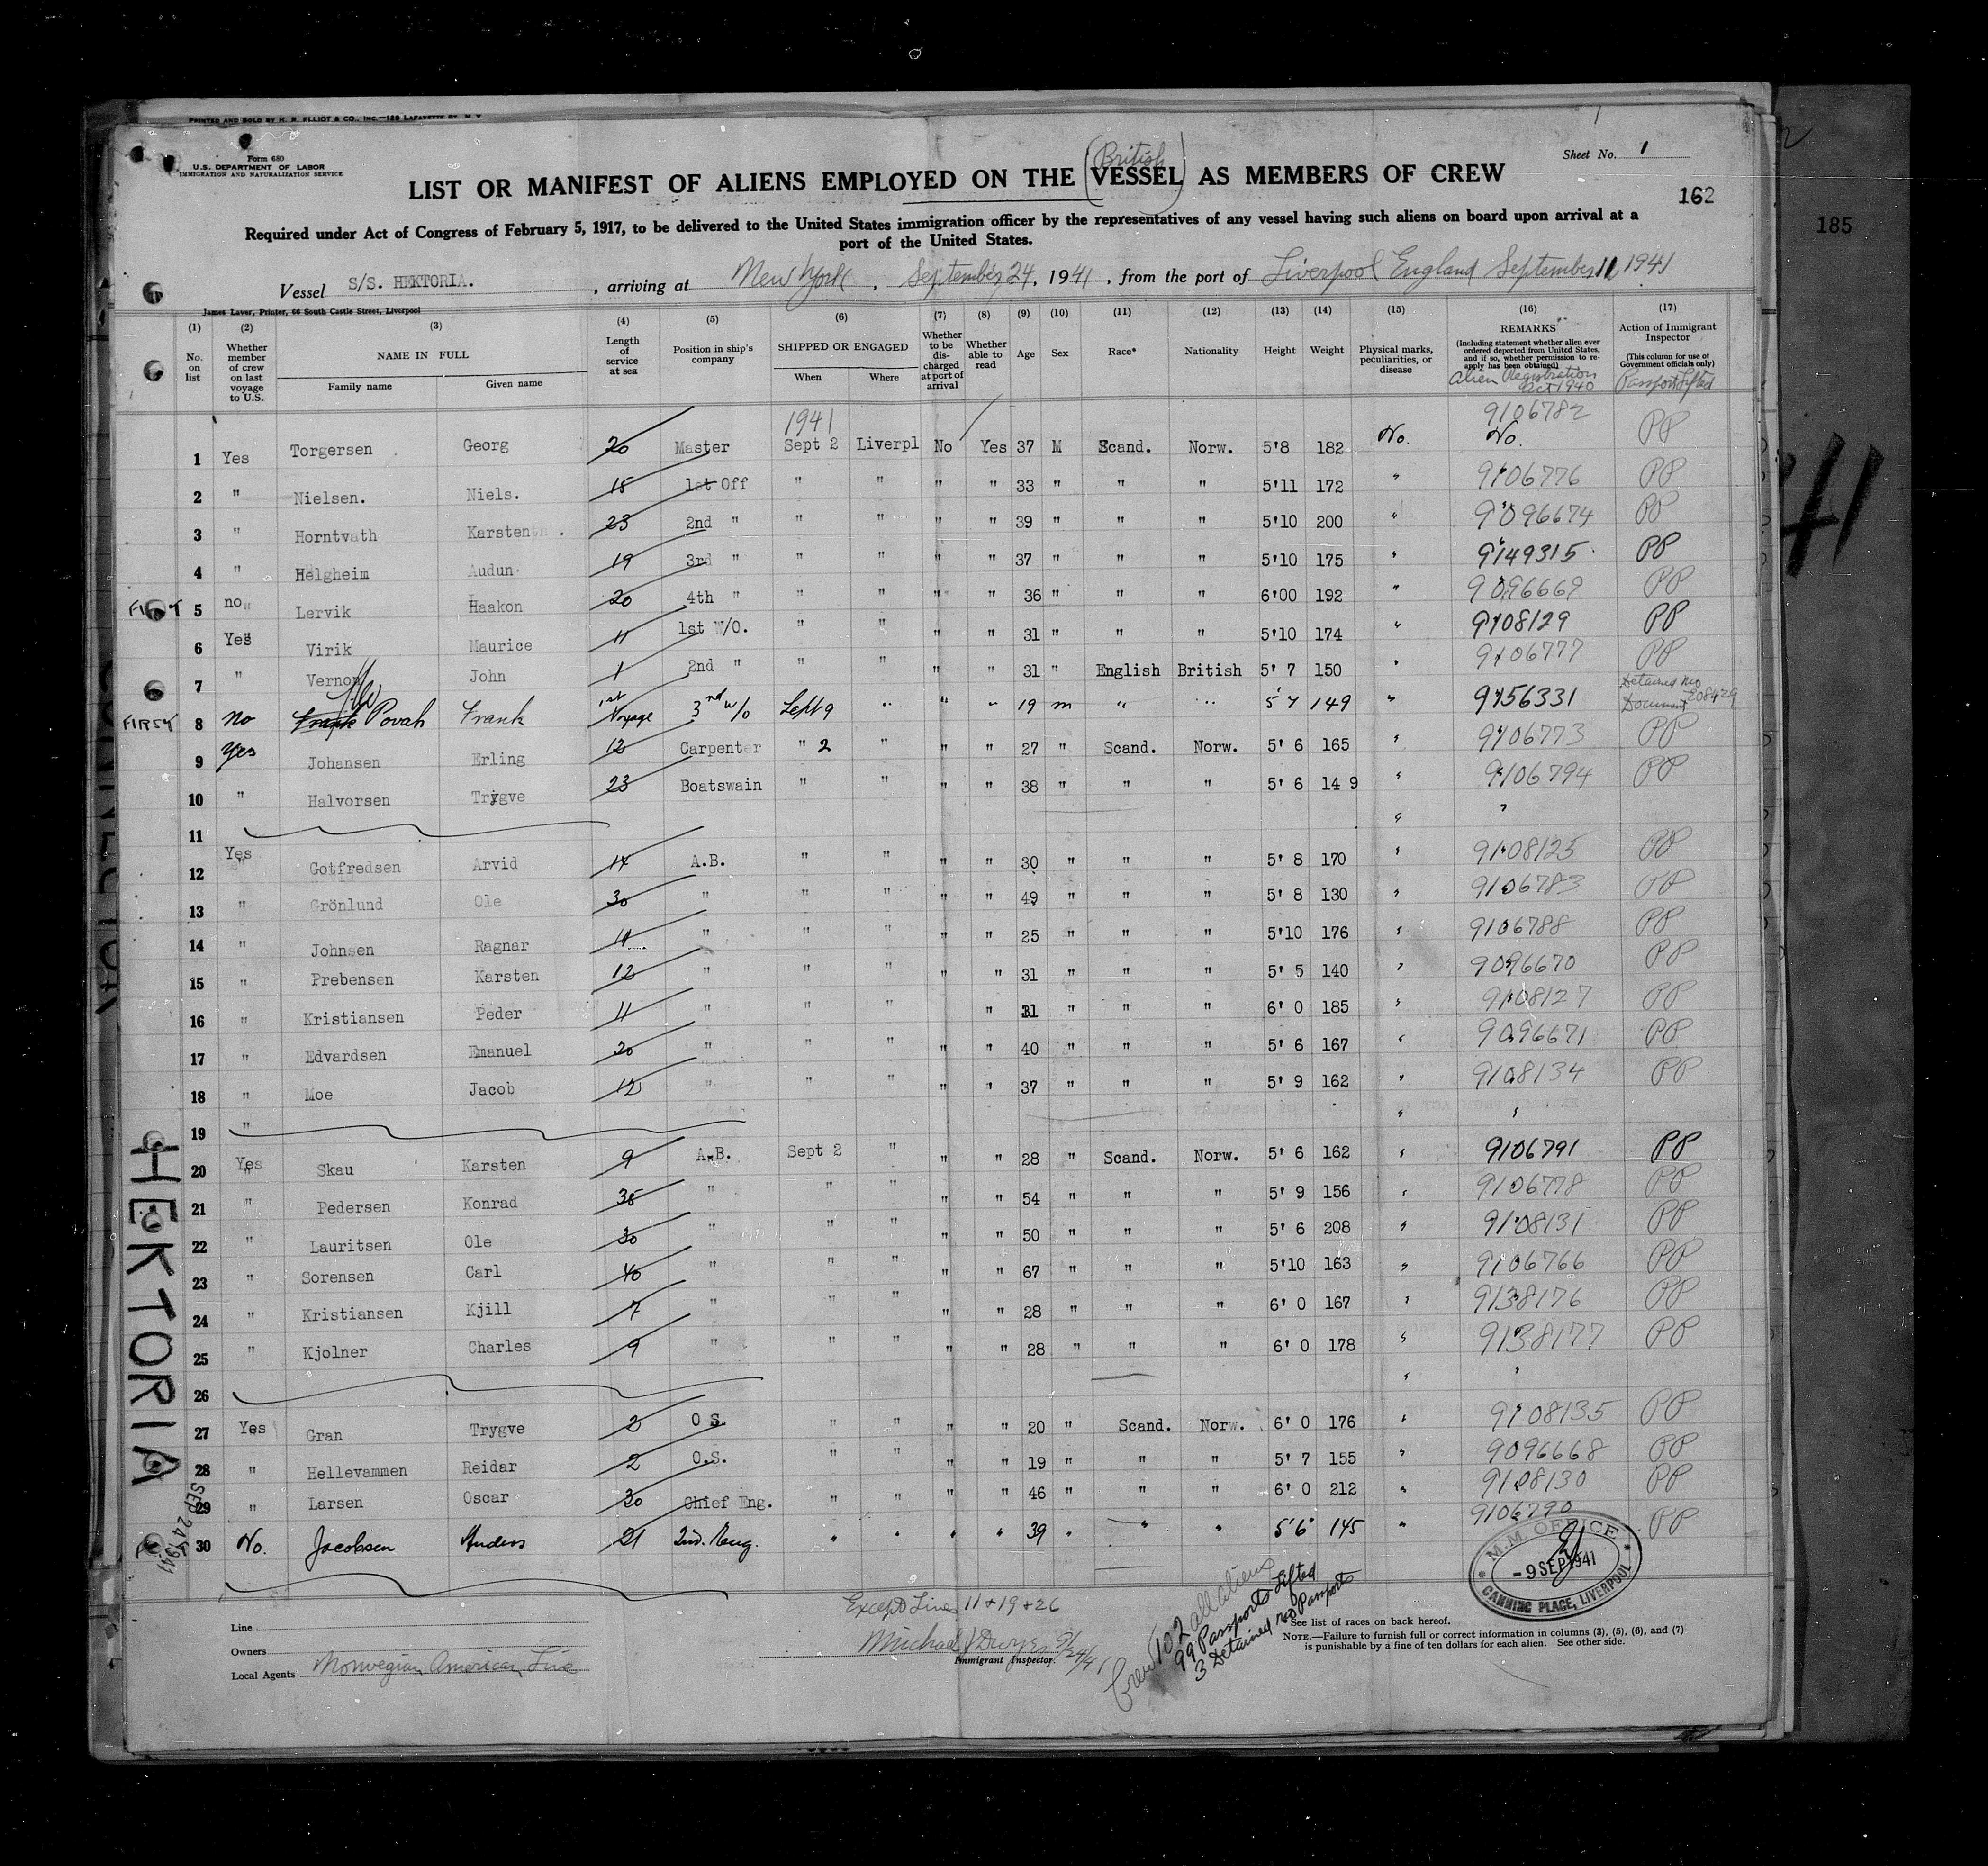 PRINTED AND SOLD BY H. R. ELLIOT & CO., INC.—129 LAFAYETTE ST. N Y
Form 680
U.S. DEPARTMENT OF LABOR
IMMIGRATION AND NATURALIZATION SERVICE
Sheet No. 1
British
LIST OR MANIFEST OF ALIENS EMPLOYED ON THE (VESSEL) AS MEMBERS OF CREW
162
185
Required under Act of Congress of February 5, 1917, to be delivered to the United States immigration officer by the representatives of any vessel having such aliens on board upon arrival at a
port of the United States.
Vessel S/S. HEKTORIA. , arriving at New York , September 24, 1941, from the port of Liverpool England September 11, 1941
James Laver, Printer, 66 South Castle Street, Liverpool
(1) (2) (3) (4) (5) (6) (7) (8) (9) (10) (11) (12) (13) (14) (15) (16) (17)
No. on list
Whether member of crew on last voyage to U.S.
NAME IN FULL
Family name Given name
Length of service at sea
Position in ship's company
SHIPPED OR ENGAGED
When Where
Whether to be discharged at port of arrival
Whether able to read
Age
Sex
Race*
Nationality
Height
Weight
Physical marks, peculiarities, or disease
REMARKS
(Including statement whether alien ever ordered deported from United States, and if so, whether permission to reapply has been obtained)
Alien Registration Act 1940
Action of Immigrant Inspector
(This column for use of Government officials only)
Passport Lifted
1941
1 Yes Torgersen Georg 20 Master Sept 2 Liverpl No Yes 37 M Scand. Norw. 5'8 182 No. 9106782 No. PP
2 " Nielsen. Niels. 15 1st Off " " " " 33 " " " 5'11 172 " 9106776 PP
3 " Horntvath Karsten 23 2nd " " " " " 39 " " " 5'10 200 " 9096674 PP
4 " Helgheim Audun 19 3rd " " " " " 37 " " " 5'10 175 " 9149315 PP
FIRST 5 no " Lervik Haakon 20 4th " " " " " 36 " " " 6'00 192 " 9096669 PP
6 Yes Virik Maurice 11 1st W/O. " " " " 31 " " " 5'10 174 " 9108129 PP
7 " Vernon John 1 2nd " " " " " 31 " English British 5' 7 150 " 9106777 PP
FIRST 8 no Frank Povah Frank 1st Voyage 3rd w/o Sept 9 " " " 19 m " " 5'7 149 " 9156331 Detained No Document 208429
9 Yes Johansen Erling 12 Carpenter " 2 " " " 27 " Scand. Norw. 5' 6 165 " 9106773 PP
10 " Halvorsen Trygve 23 Boatswain " " " " 38 " " " 5' 6 149 " 9106794 PP
11 " "
12 Yes Gotfredsen Arvid 14 A.B. " " " " 30 " " " 5' 8 170 " 9108125 PP
13 " Grönlund Ole 30 " " " " " 49 " " " 5' 8 130 " 9106783 PP
14 " Johnsen Ragnar 11 " " " " " 25 " " " 5'10 176 " 9106788 PP
15 " Prebensen Karsten 12 " " " " " 31 " " " 5' 5 140 " 9096670 PP
16 " Kristiansen Peder 11 " " " " 31 " " " 6' 0 185 " 9108127 PP
17 " Edvardsen Emanuel 20 " " " " " 40 " " " 5' 6 167 " 9096671 PP
18 " Moe Jacob 12 " " " " " 37 " " " 5' 9 162 " 9108134 PP
19 " " "
20 Yes Skau Karsten 9 A.B. Sept 2 " " " 28 " Scand. Norw. 5' 6 162 " 9106791 PP
21 " Pedersen Konrad 38 " " " " " 54 " " " 5' 9 156 " 9106778 PP
22 " Lauritsen Ole 30 " " " " " 50 " " " 5' 6 208 " 9108131 PP
23 " Sorensen Carl 40 " " " " " 67 " " " 5'10 163 " 9106766 PP
24 " Kristiansen Kjill 7 " " " " " 28 " " " 6' 0 167 " 9138176 PP
25 " Kjolner Charles 9 " " " " " 28 " " " 6' 0 178 " 9138177 PP
26 " "
27 Yes Gran Trygve 2 O S. " " " " 20 " Scand. Norw. 6' 0 176 " 9108135 PP
28 " Hellevammen Reidar 2 O.S. " " " " 19 " " " 5' 7 155 " 9096668 PP
29 " Larsen Oscar 30 Chief Eng. " " " " 46 " " " 6' 0 212 " 9108130 PP
30 No. Jacobsen Anders 21 2nd. Eng. " " " " 39 " " " 5'6" 145 " 9106790 PP
HEKTORIA
SEP 24 1941
41
M.M. OFFICE
- 9 SEP 1941
CANNING PLACE, LIVERPOOL
Except Lines 11 + 19 + 26
Line
Owners
Local Agents Norwegian American Line
Michael J Dwyer 9/24/41
Immigrant Inspector.
Crew 102 all aliens
99 Passports Lifted
3 Detained no Passports
*See list of races on back hereof.
NOTE.—Failure to furnish full or correct information in columns (3), (5), (6), and (7)
is punishable by a fine of ten dollars for each alien. See other side.